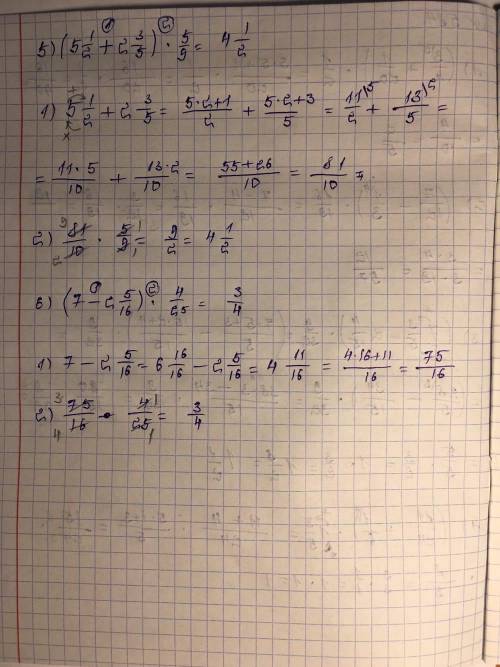 5) (5 1/2 + 2 3/5) · 5/9 = 4 1/2
1) 5 1/2 + 2 3/5 = (5·2+1)/2 + (5·2+3)/5 = 11/2 + 13/5 =
= (11·5)/10 + (13·2)/10 = (55+26)/10 = 81/10
2) 81/10 · 5/9 = 9/2 = 4 1/2
6) (7 - 2 5/16) · 4/25 = 3/4
1) 7 - 2 5/16 = 6 16/16 - 2 5/16 = 4 11/16 = (4·16+11)/16 = 75/16
2) 75/16 · 4/25 = 3/4